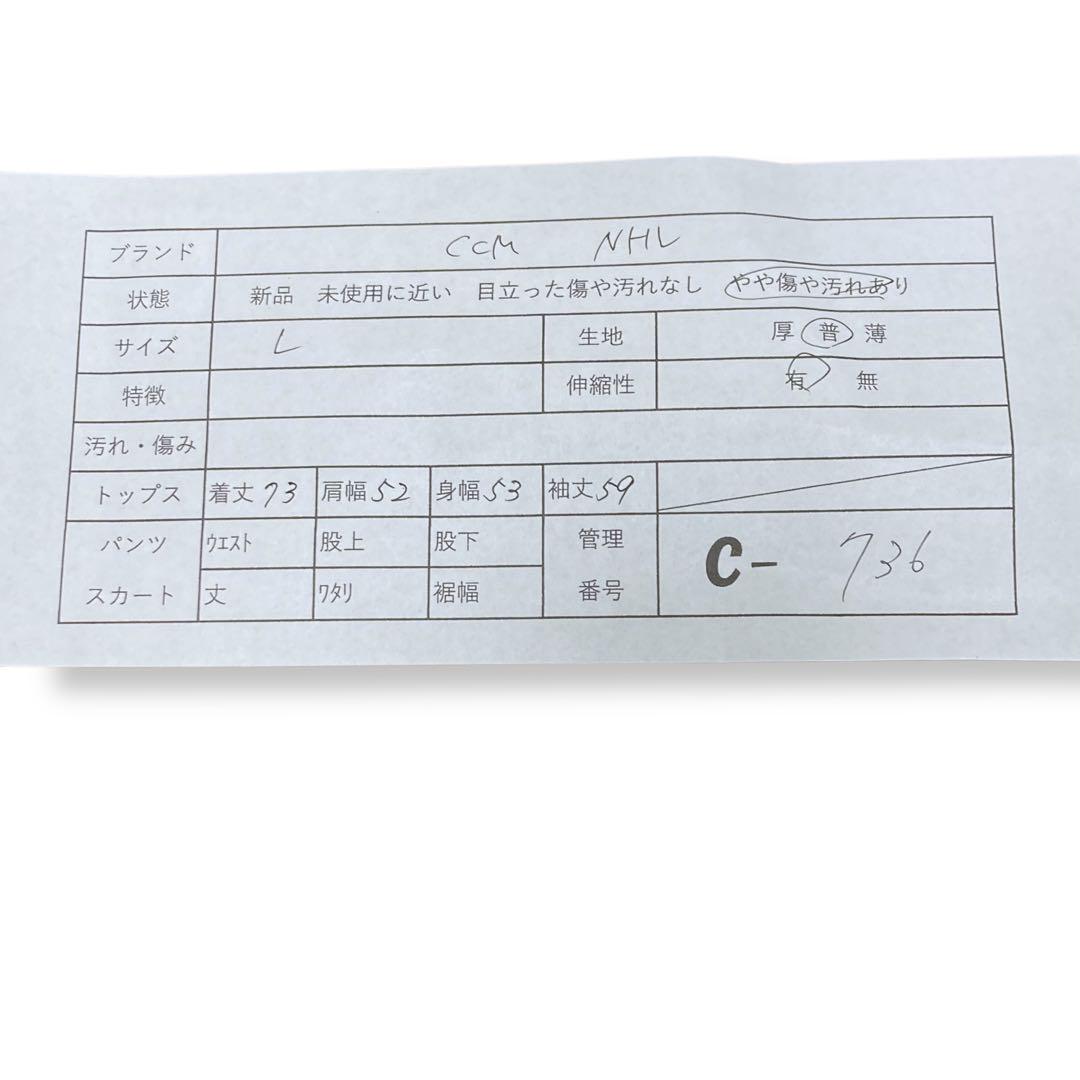 ブランド CCM NHL
状態 新品 未使用に近い 目立った傷や汚れなし やや傷や汚れあり
サイズ L 生地 厚 普 薄
特徴 伸縮性 有 無
汚れ・傷み
トップス 着丈 73 肩幅 52 身幅 53 袖丈 59
パンツ ｳｴｽﾄ 股上 股下 管理
スカート 丈 ﾜﾀﾘ 裾幅 番号
C- 736